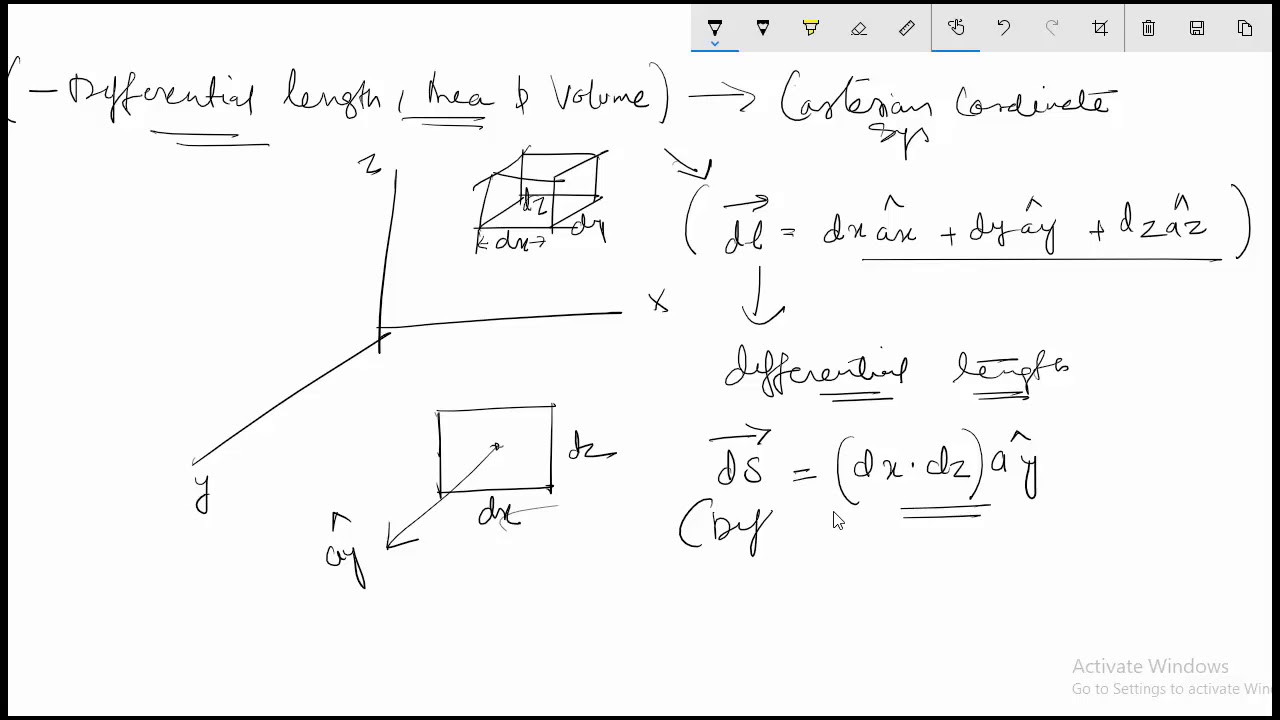 (— Differential length, Area & Volume) → Cartesian Coordinate Sys
z
dz
dy
dx
(dl = dx âx + dy ây + dz âz)
x
differential lengths
y
dz
dx
ây
dS = (dx · dz) ây
(Dif
Activate Windows
Go to Settings to activate Win